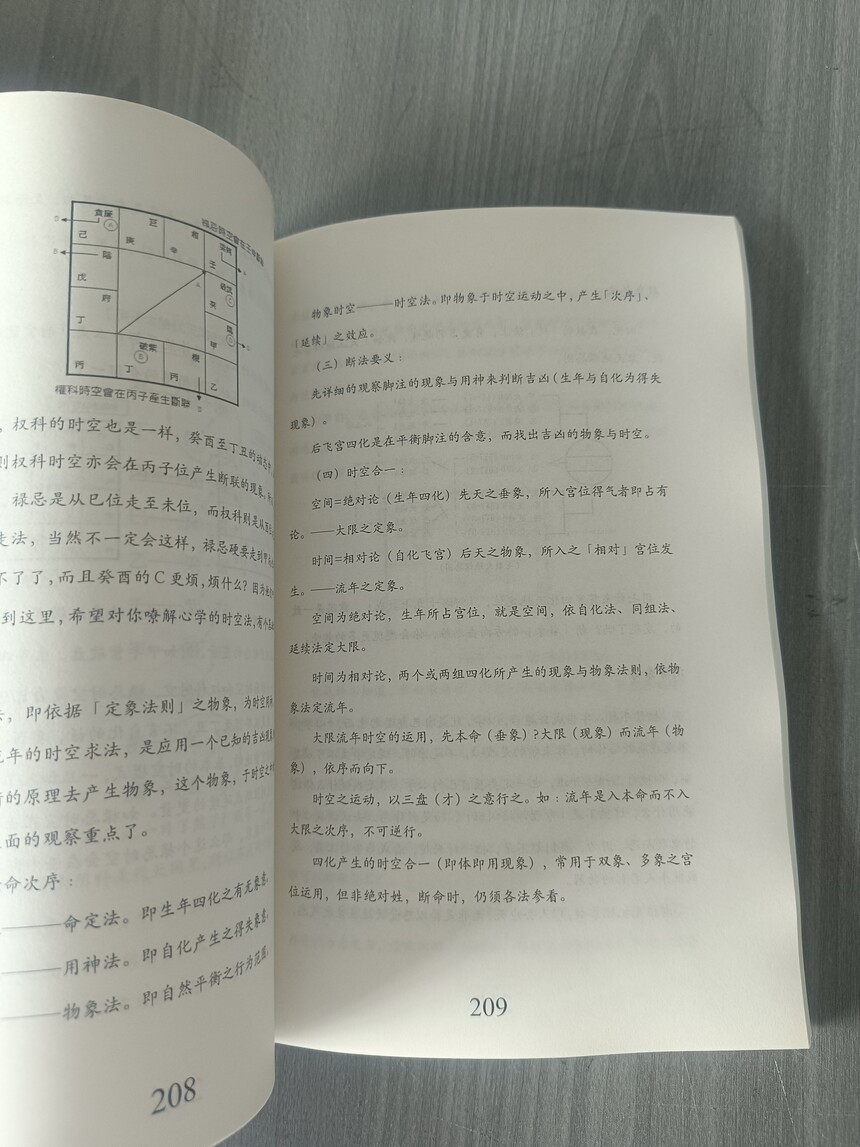 己
庚
辛
壬
戊
丁
丙
丁
丙
乙
甲
癸
權科時空會在丙子產生斷聯
,权科的时空也是一样,癸酉至丁丑的动态中
则权科时空亦会在丙子位产生断联的现象,
禄忌是从巳位走至未位,而权科则是从
走法,当然不一定会这样,禄忌硬要走到甲
不了了,而且癸酉的C更烦,烦什么?因为
到这里,希望对你嘹解心学的时空法,有个
,即依据「定象法则」之物象,为时空所
流年的时空求法,是应用一个已知的吉凶现象
的原理去产生物象,这个物象,于时空之
面的观察重点了。
命次序:
——命定法。即生年四化之有无象意。
——用神法。即自化产生之得失象意。
——物象法。即自然平衡之行为范围。
208
物象时空———时空法。即物象于时空运动之中,产生「次序」、
「延续」之效应。
(三)断法要义:
先详细的观察脚注的现象与用神来判断吉凶(生年与自化为得失
现象)。
后飞宫四化是在平衡脚注的含意,而找出吉凶的物象与时空。
(四)时空合一:
空间=绝对论(生年四化)先天之垂象,所入宫位得气者即占有
论。——大限之定象。
时间=相对论(自化飞宫)后天之物象,所入之「相对」宫位发
生。——流年之定象。
空间为绝对论,生年所占宫位,就是空间,依自化法、同组法、
延续法定大限。
时间为相对论,两个或两组四化所产生的现象与物象法则,依物
象法定流年。
大限流年时空的运用,先本命(垂象)?大限(现象)而流年(物
象),依序而向下。
时空之运动,以三盘(才)之意行之。如:流年是入本命而不入
大限之次序,不可逆行。
四化产生的时空合一(即体即用现象),常用于双象、多象之宫
位运用,但非绝对姓,断命时,仍须各法参看。
209